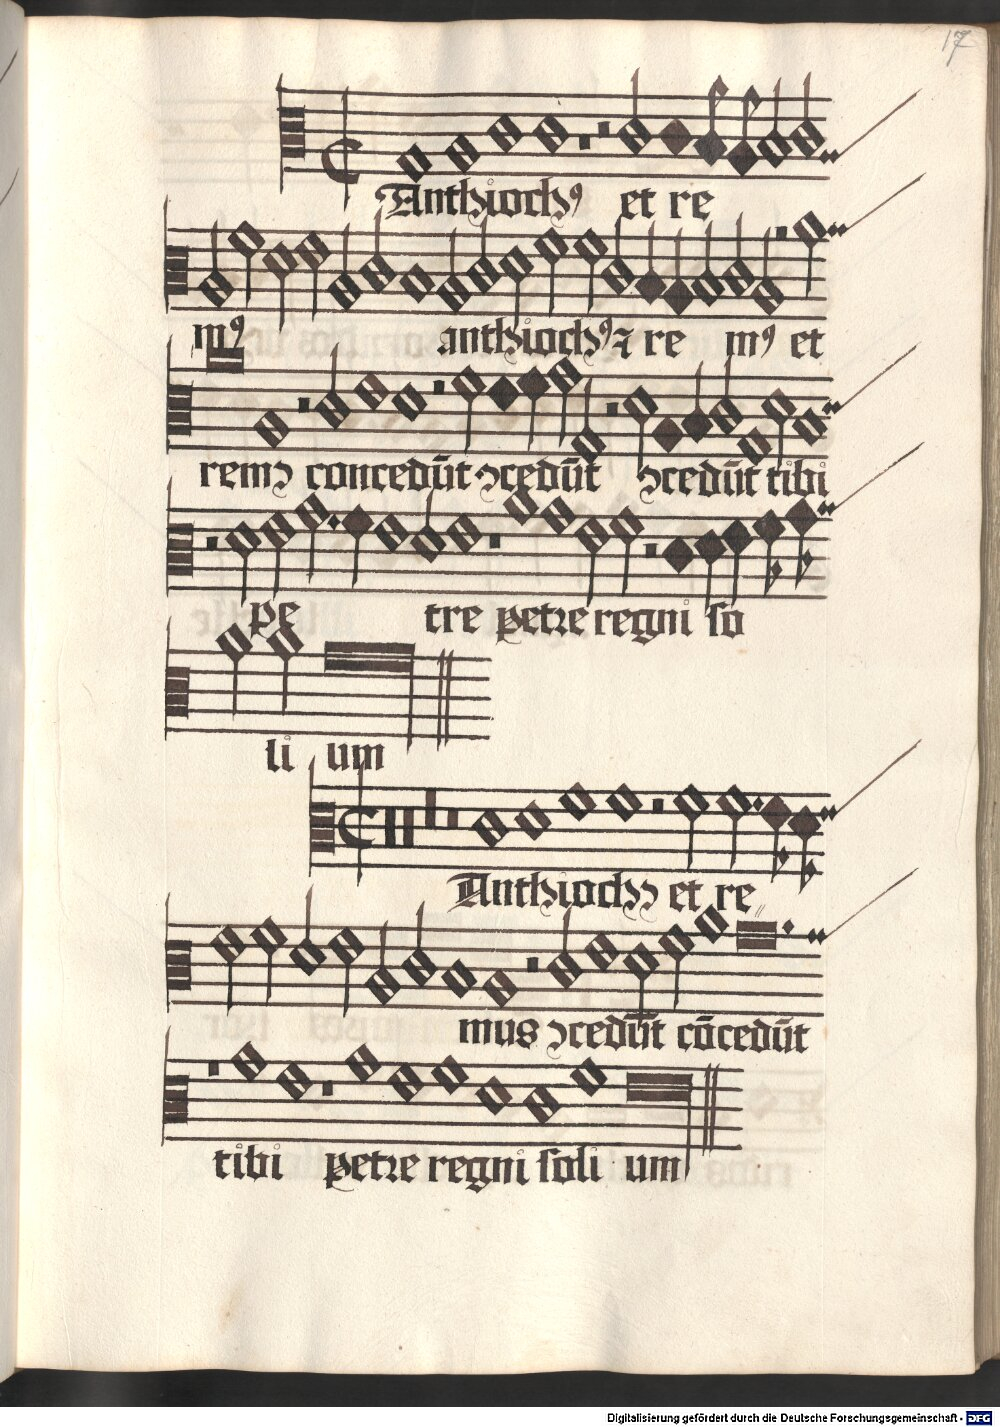 17
Anthiochꝰ et re
mꝰ anthiochꝰ ⁊ re mꝰ et
remꝰ concedūt ↄcedūt ↄcedūt tibi
pe tre petre regni so
li um
Anthiochꝰ et re
mus ↄcedūt cōcedūt
tibi petre regni soli um
Digitalisierung gefördert durch die Deutsche Forschungsgemeinschaft - DFG